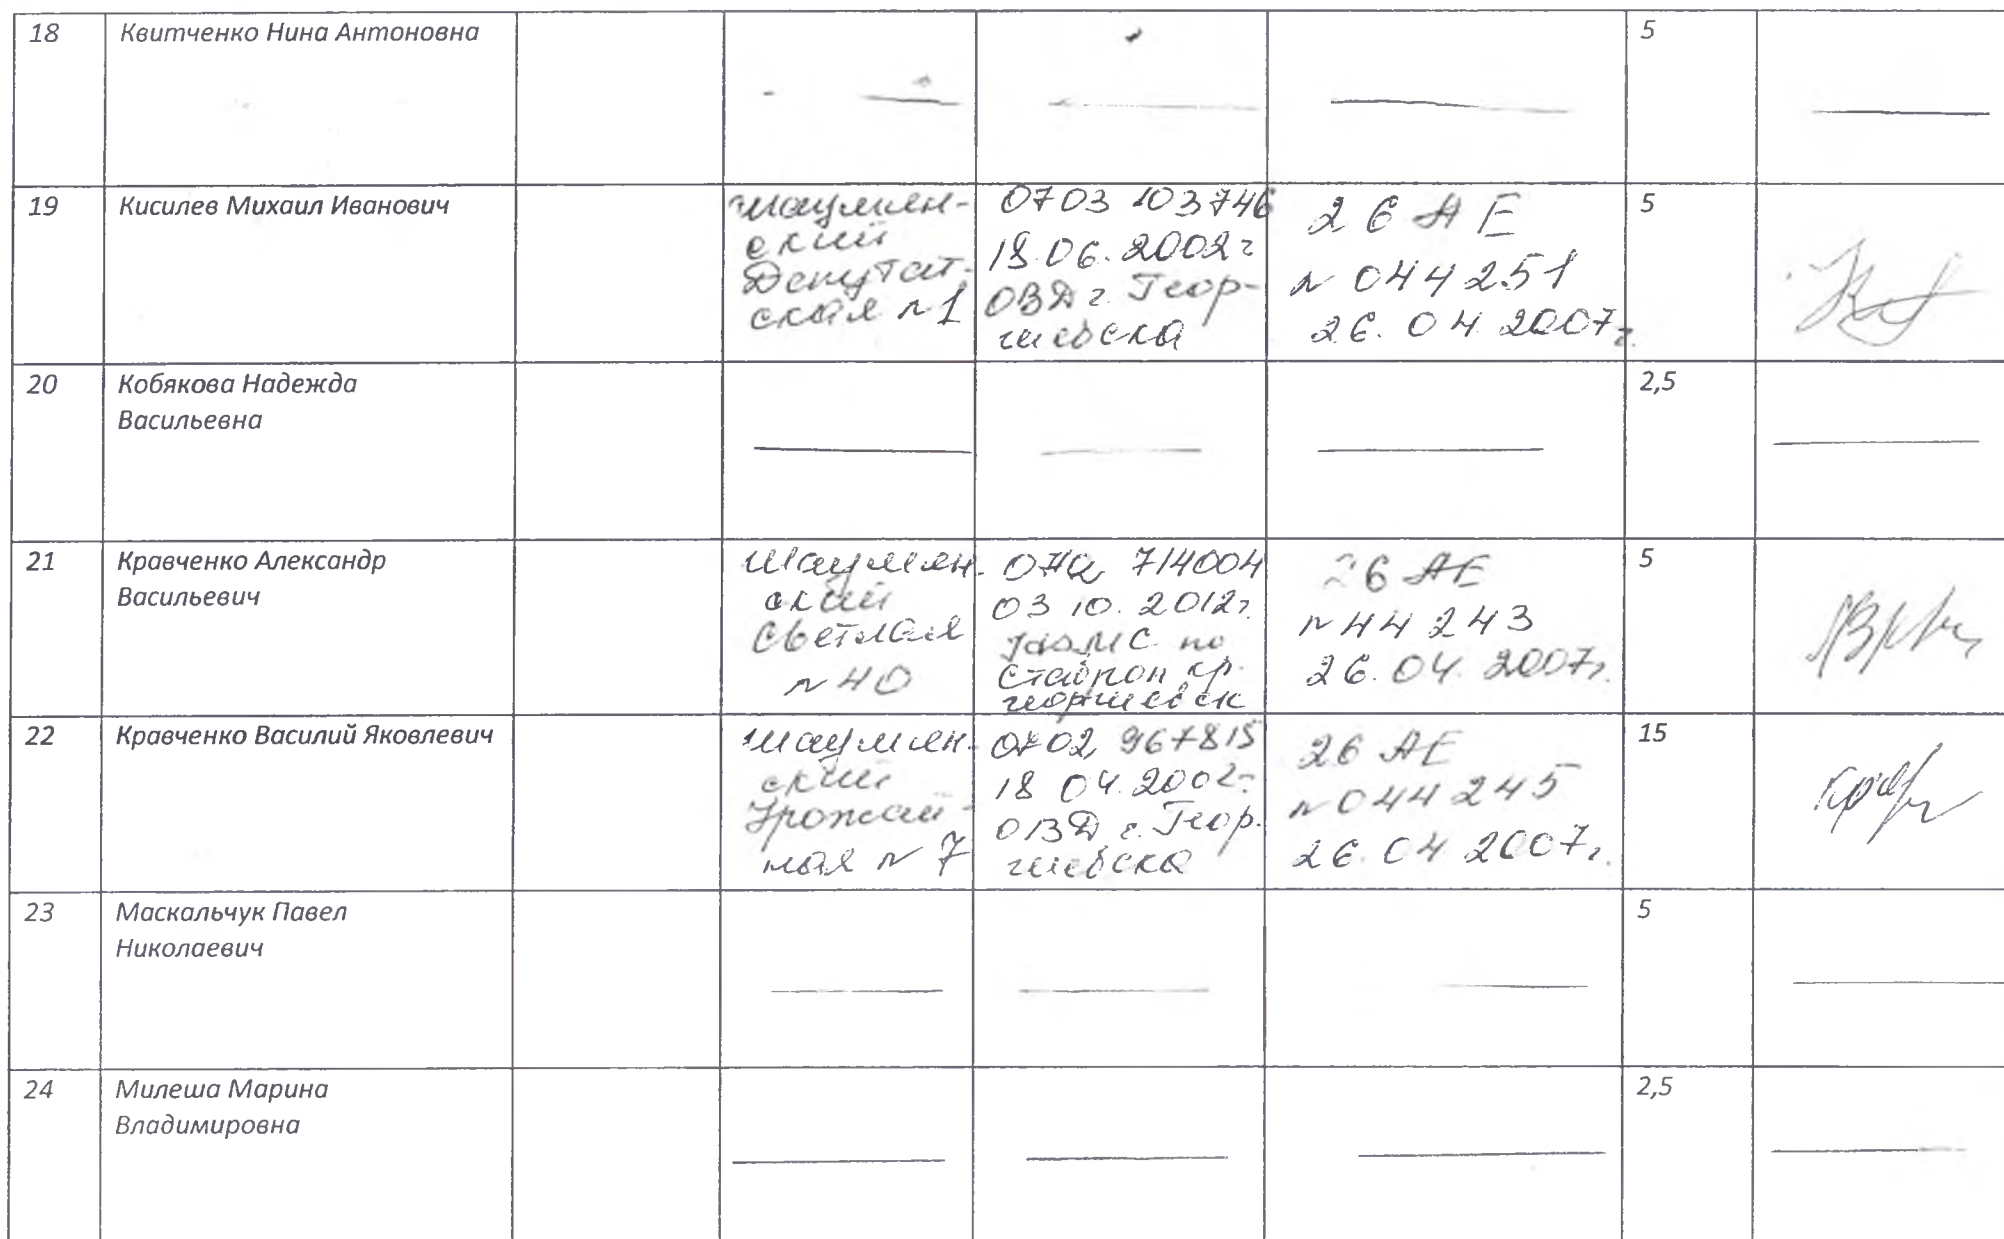 18 Квитченко Нина Антоновна 5
19 Кисилев Михаил Иванович 5
шаумян-
ский
Депутат-
ская №1
0703 103746
18.06.2002г
ОВД г. Геор-
гиевска
26 АЕ
№ 044251
26.04.2007г.
20 Кобякова Надежда 2,5
Васильевна
21 Кравченко Александр 5
Васильевич
Шаумян-
ский
Светлая
№ 40
714004
03 10. 2012г.
по
Ставроп кр.
георгиевск
26 АЕ
№ 44 243
26.04. 2007г.
22 Кравченко Василий Яковлевич 15
шаумян-
ский
Урожай-
ная № 7
0702 967815
18 04.2002г.
ОВД г. Геор-
гиевска
26 АЕ
№ 044 245
26.04 2007г.
23 Маскальчук Павел 5
Николаевич
24 Милеша Марина 2,5
Владимировна